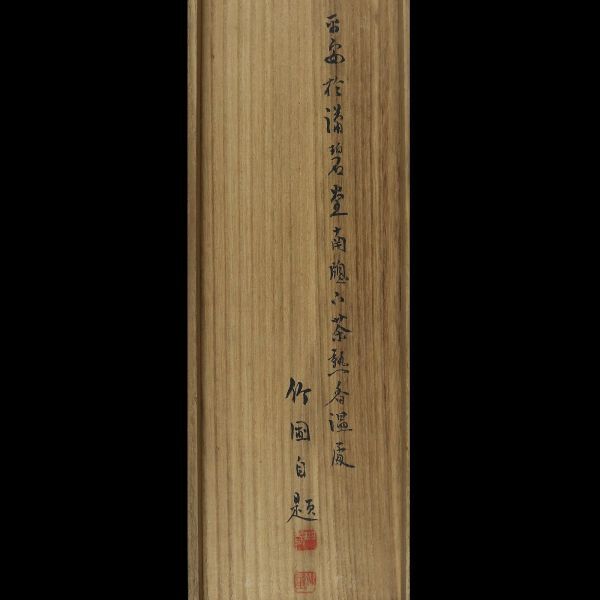 平安於漪碧堂南牕下茶熟香温處
竹圃自題